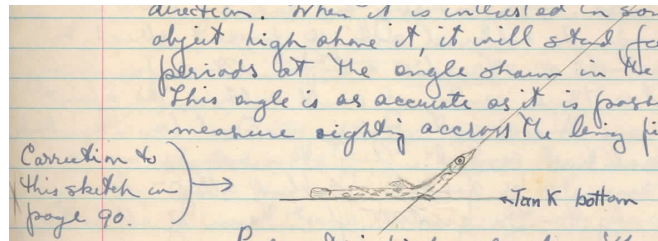 direction. When it is interested in
object high above it, it will stand
periods at the angle shown in the
This angle is as accurate as it is
measure sighting accross the living
Carrection to
this sketch on
page 90.
Tank bottom